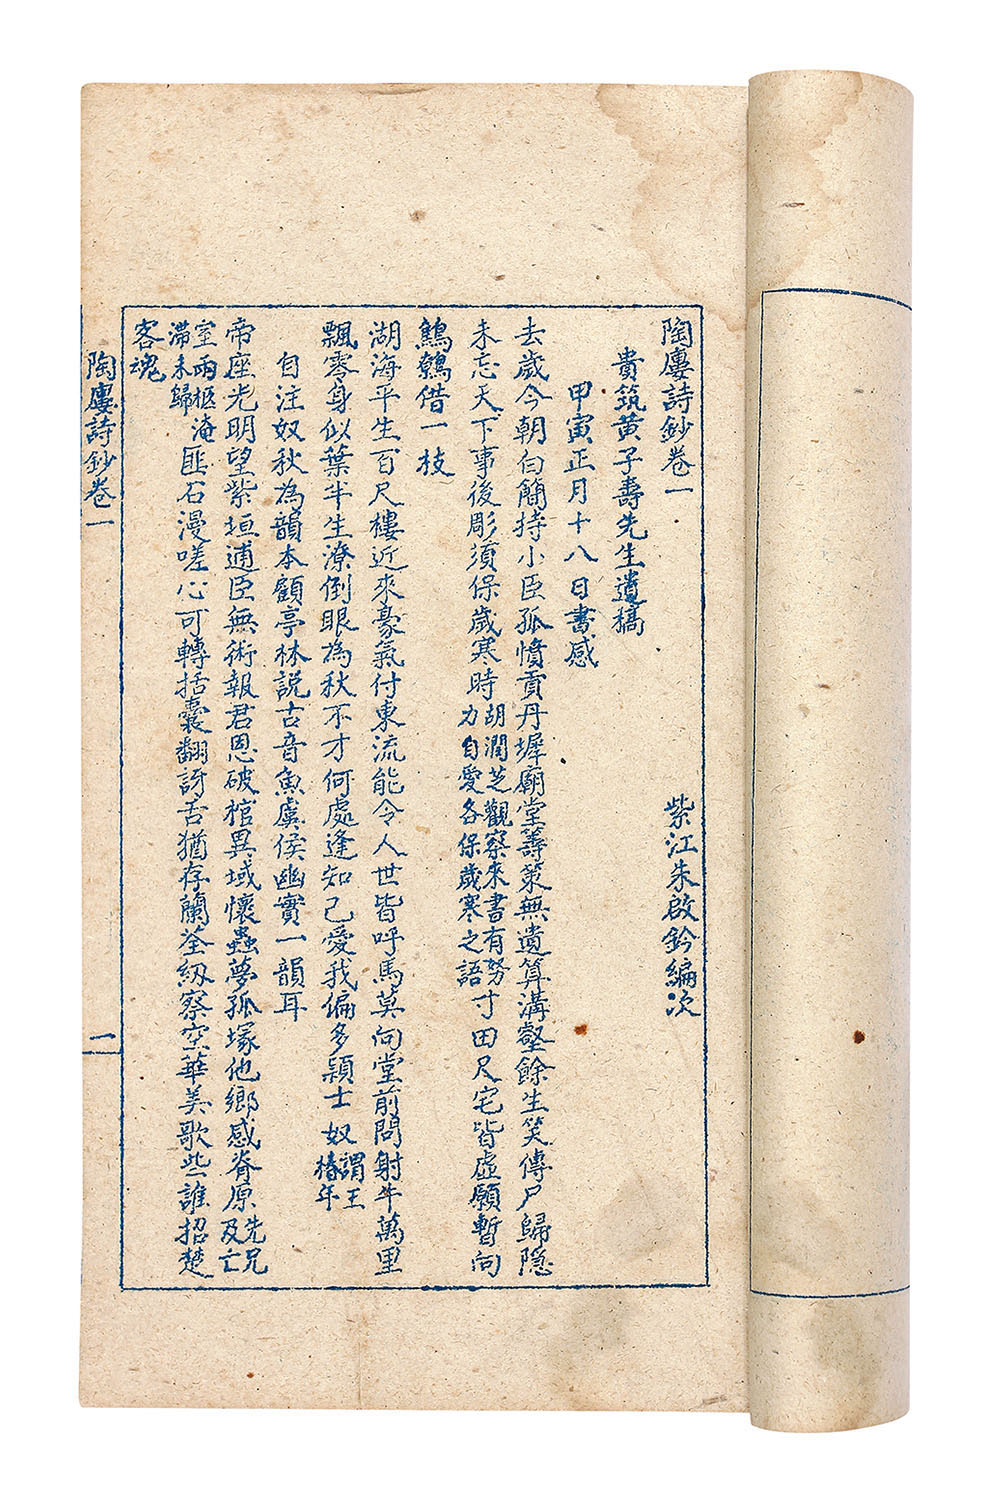 陶廔詩鈔卷一
紫江朱啟鈐編次
貴筑黃子壽先生遺稿
甲寅正月十八日書感
去歲今朝白簡持小臣孤憤貢丹墀廟堂籌策無遺算溝壑餘生笑傳尸歸隱
未忘天下事後彫須保歲寒時胡潤芝觀察來書有努力自愛各保歲寒之語寸田尺宅皆虛願暫向
鷦鷯借一枝
湖海平生百尺樓近來豪氣付東流能令人世皆呼馬莫向堂前問射牛萬里
飄零身似葉半生潦倒眼為秋不才何處逢知己愛我偏多穎士奴謂王椿年
自注奴秋為韻本顧亭林說古音魚虞侯幽實一韻耳
帝座光明望紫垣逋臣無術報君恩破棺異域懷蟲夢孤塚他鄉感脊原先兄及亡
室兩柩淹滯未歸匪石漫嗟心可轉括囊翻訝舌猶存蘭荃紉察空華美歌些誰招楚
客魂
陶廔詩鈔卷一
一